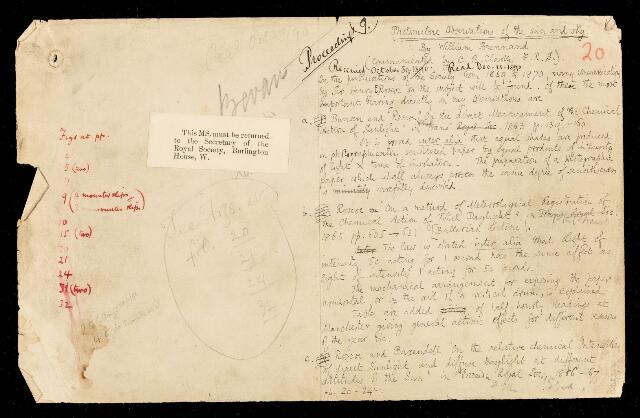 Proceedings.
Bevan
This MS. must be returned
to the Secretary of the
Royal Society, Burlington
House, W.
Figs at pp.
4
5 (two)
7
9 (2 mounted slips)
10
15 (two)
20
21
24
31 (two)
32
See figs. at
20
21
24
Photometric Observations of the sun and sky
20
By William Brennand
(Communicated by C. B. Clarke F.R.S.)
Received October 30, 1890. Read Dec. 11. 1890
In the publications of the Society from 1860 to 1870, many
by Sir Henry Roscoe on the subject will be found. Of these the most
important bearing directly on my observations are
a. Bunsen and Roscoe "On the direct Measurement of the Chemical
Action of Sunlight" in Trans. Royal Soc. 1863 p. 139-160
It is found inter alia that equal shades are produced
on photographically sensitized paper by equal products of intensity
of light × time of insolation. The preparation of a photographic
paper which shall always possess the same degree of sensitiveness
is carefully described
b. Roscoe on "On a method of Meteorological Registration of
the Chemical Action of Total Daylight" in Trans. Royal Soc.
1865 pp. 605-631 (Bakerian Lecture).
The law is stated inter alia that light of
intensity 50 acting for 1 second has the same effect as
light of intensity 1 acting for 50 seconds.
The mechanical arrangement for exposing the paper
horizontal or on the end of a vertical drum, is explained
Tables are added of half hourly readings at
Manchester giving general actinic effects for different seasons
of the year etc.
c. Roscoe and Baxendell "On the relative chemical Intensities
of direct Sunlight and diffuse Daylight at different
altitudes of the Sun" in Proceeds. Royal Soc. 1866-67
pp. 20-24.